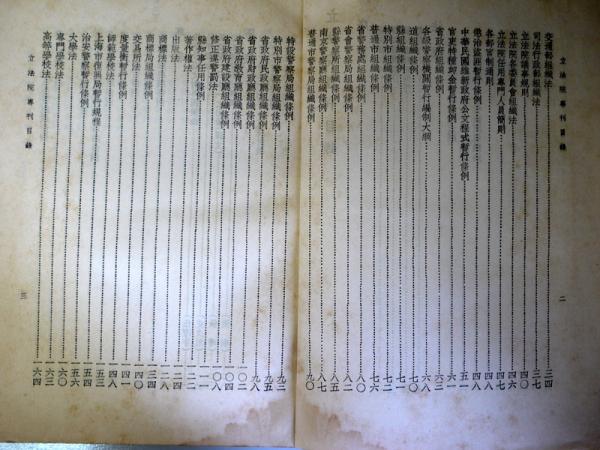 立法院專刊目錄
交通部組織法 三四
司法行政部組織法 三七
立法院議事規則 四〇
立法院各委員會組織法 四六
立法院任用專門人員簡則 四七
各部官制通則 四八
懲治盜匪暫行條例 四八
中華民國維新政府公文程式暫行條例 五一
官吏特種卹金暫行條例 六一
省政府組織條例 六三
各級警察機關暫行編制大綱 六八
道組織條例 七〇
縣組織條例 七一
特別市組織條例 七二
普通市組織條例 七六
省警務處組織條例 八〇
省會警察局組織條例 八二
縣警察局組織條例 八五
南京警察局組織條例 八七
普通市警察局組織條例 九〇
二
立法院專刊目錄
特設警察局組織條例 九二
特別市警察局組織條例 九五
省政府民政廳組織條例 九八
省政府財政廳組織條例
省政府教育廳組織條例 一〇二
省政府建設廳組織條例 一〇四
修正謀害罰法 一〇八
縣知事任用條例 一一一
著作權法 一一四
出版法 一二二
商標法 一二八
商標局組織條例 一三四
交易所法 一四〇
度量衡暫行條例 一四一
師範學校法 一四八
上海市作業局暫行規程 一五三
治安警察暫行條例 一五四
大學法 一五六
專門學校法 一六〇
高等學校法 一六四
三